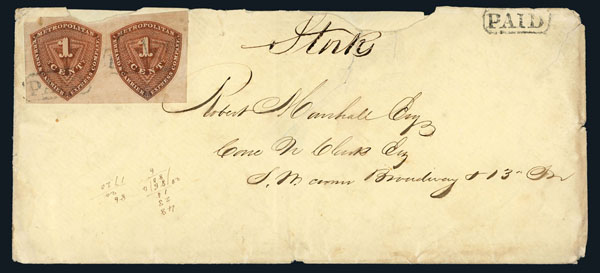 METROPOLITAN
1
CENT.
ERRAND & CARRIER EXPRESS COMPANY
METROPOLITAN
1
CENT.
ERRAND & CARRIER EXPRESS COMPANY
PAID
PAID
Stork
Robert Marshall Esq
Care N Clark Esq
S. W corner Broadway & 13th St